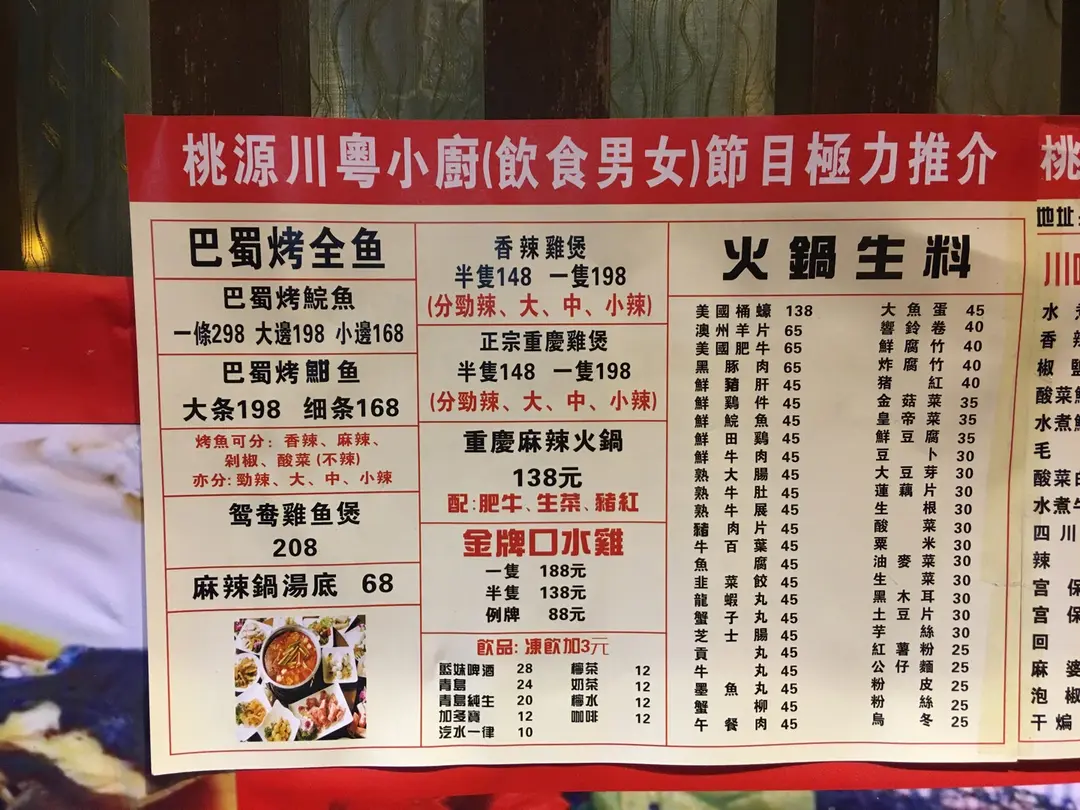 桃源川粵小廚(飲食男女)節目極力推介
巴蜀烤全鱼
巴蜀烤鯇魚
一條298 大邊198 小邊168
巴蜀烤鉗鱼
大条198 细条168
烤魚可分：香辣、麻辣、
剁椒、酸菜(不辣)
亦分：勁辣、大、中、小辣
鸳鸯雞鱼煲
208
麻辣鍋湯底 68
香辣雞煲
半隻148 一隻198
(分勁辣、大、中、小辣)
正宗重慶雞煲
半隻148 一隻198
(分勁辣、大、中、小辣)
重慶麻辣火鍋
138元
配:肥牛、生菜、豬紅
金牌口水雞
一隻 188元
半隻 138元
例牌 88元
飲品: 凍飲加3元
藍妹啤酒 28 檸茶 12
青島 24 奶茶 12
青島純生 20 檸水 12
加多寶 12 咖啡 12
汽水一律 10
火鍋生料
美國桶蠔 138
澳州羊片 65
美國肥牛 65
黑豚肉 65
鮮豬肝 45
鮮鷄件 45
鮮鯇魚 45
鮮田鷄 45
鮮牛肉 45
熟大腸 45
熟牛肚 45
熟牛展 45
豬肉片 45
牛百葉 45
魚腐 45
韭菜餃 45
龍蝦丸 45
蟹子丸 45
芝士腸 45
貢丸 45
牛丸 45
墨魚丸 45
蟹柳 45
午餐肉 45
大魚蛋 45
響鈴卷 40
鮮腐竹 40
炸腐竹 40
猪紅 40
金菇菜 35
皇帝菜 35
鮮豆腐 35
豆卜 30
大豆芽 30
蓮藕片 30
生根 30
酸菜 30
粟米 30
油麥菜 30
生菜 30
黑木耳 30
土豆片 30
芋絲 30
紅薯粉 25
公仔麵 25
粉皮 25
粉絲 25
烏冬 25
桃
地址:
川
水煮
香辣
椒鹽
酸菜
水煮
毛
酸菜
水煮牛
四川
辣
宫保
宫保
回
麻婆
泡椒
干煸